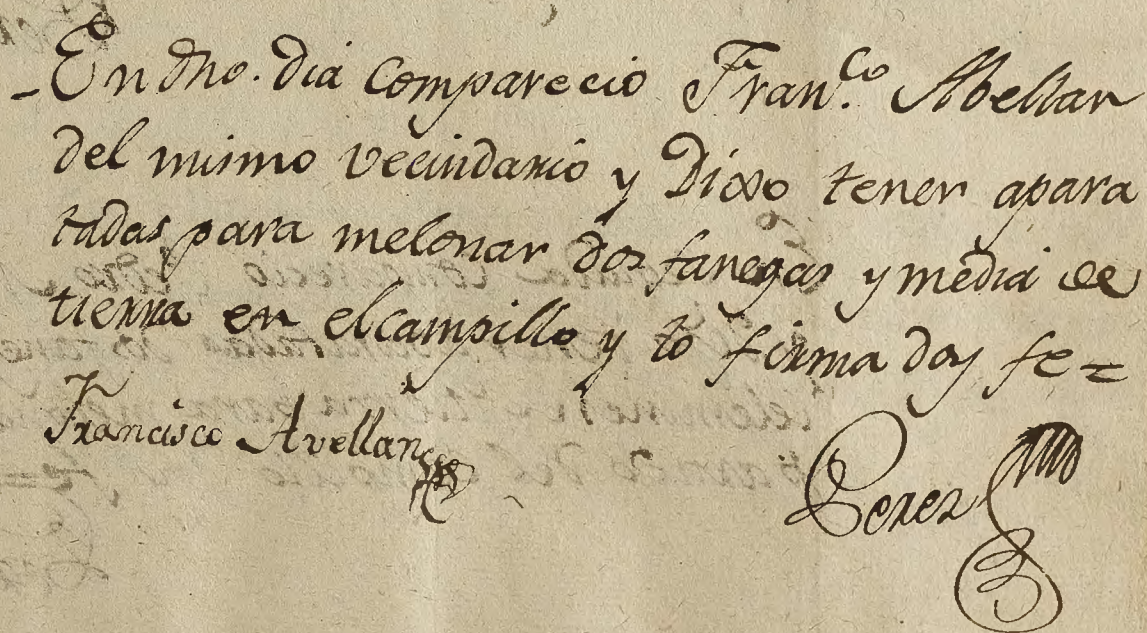 En dho. dia Comparecio Fran.co Abellan
del mismo vecindario y Dixo tener apara
tadas para melonar dos fanegas y media de
tierra en elcampillo y lo firma doy fe =
Francisco Avellan
Perez